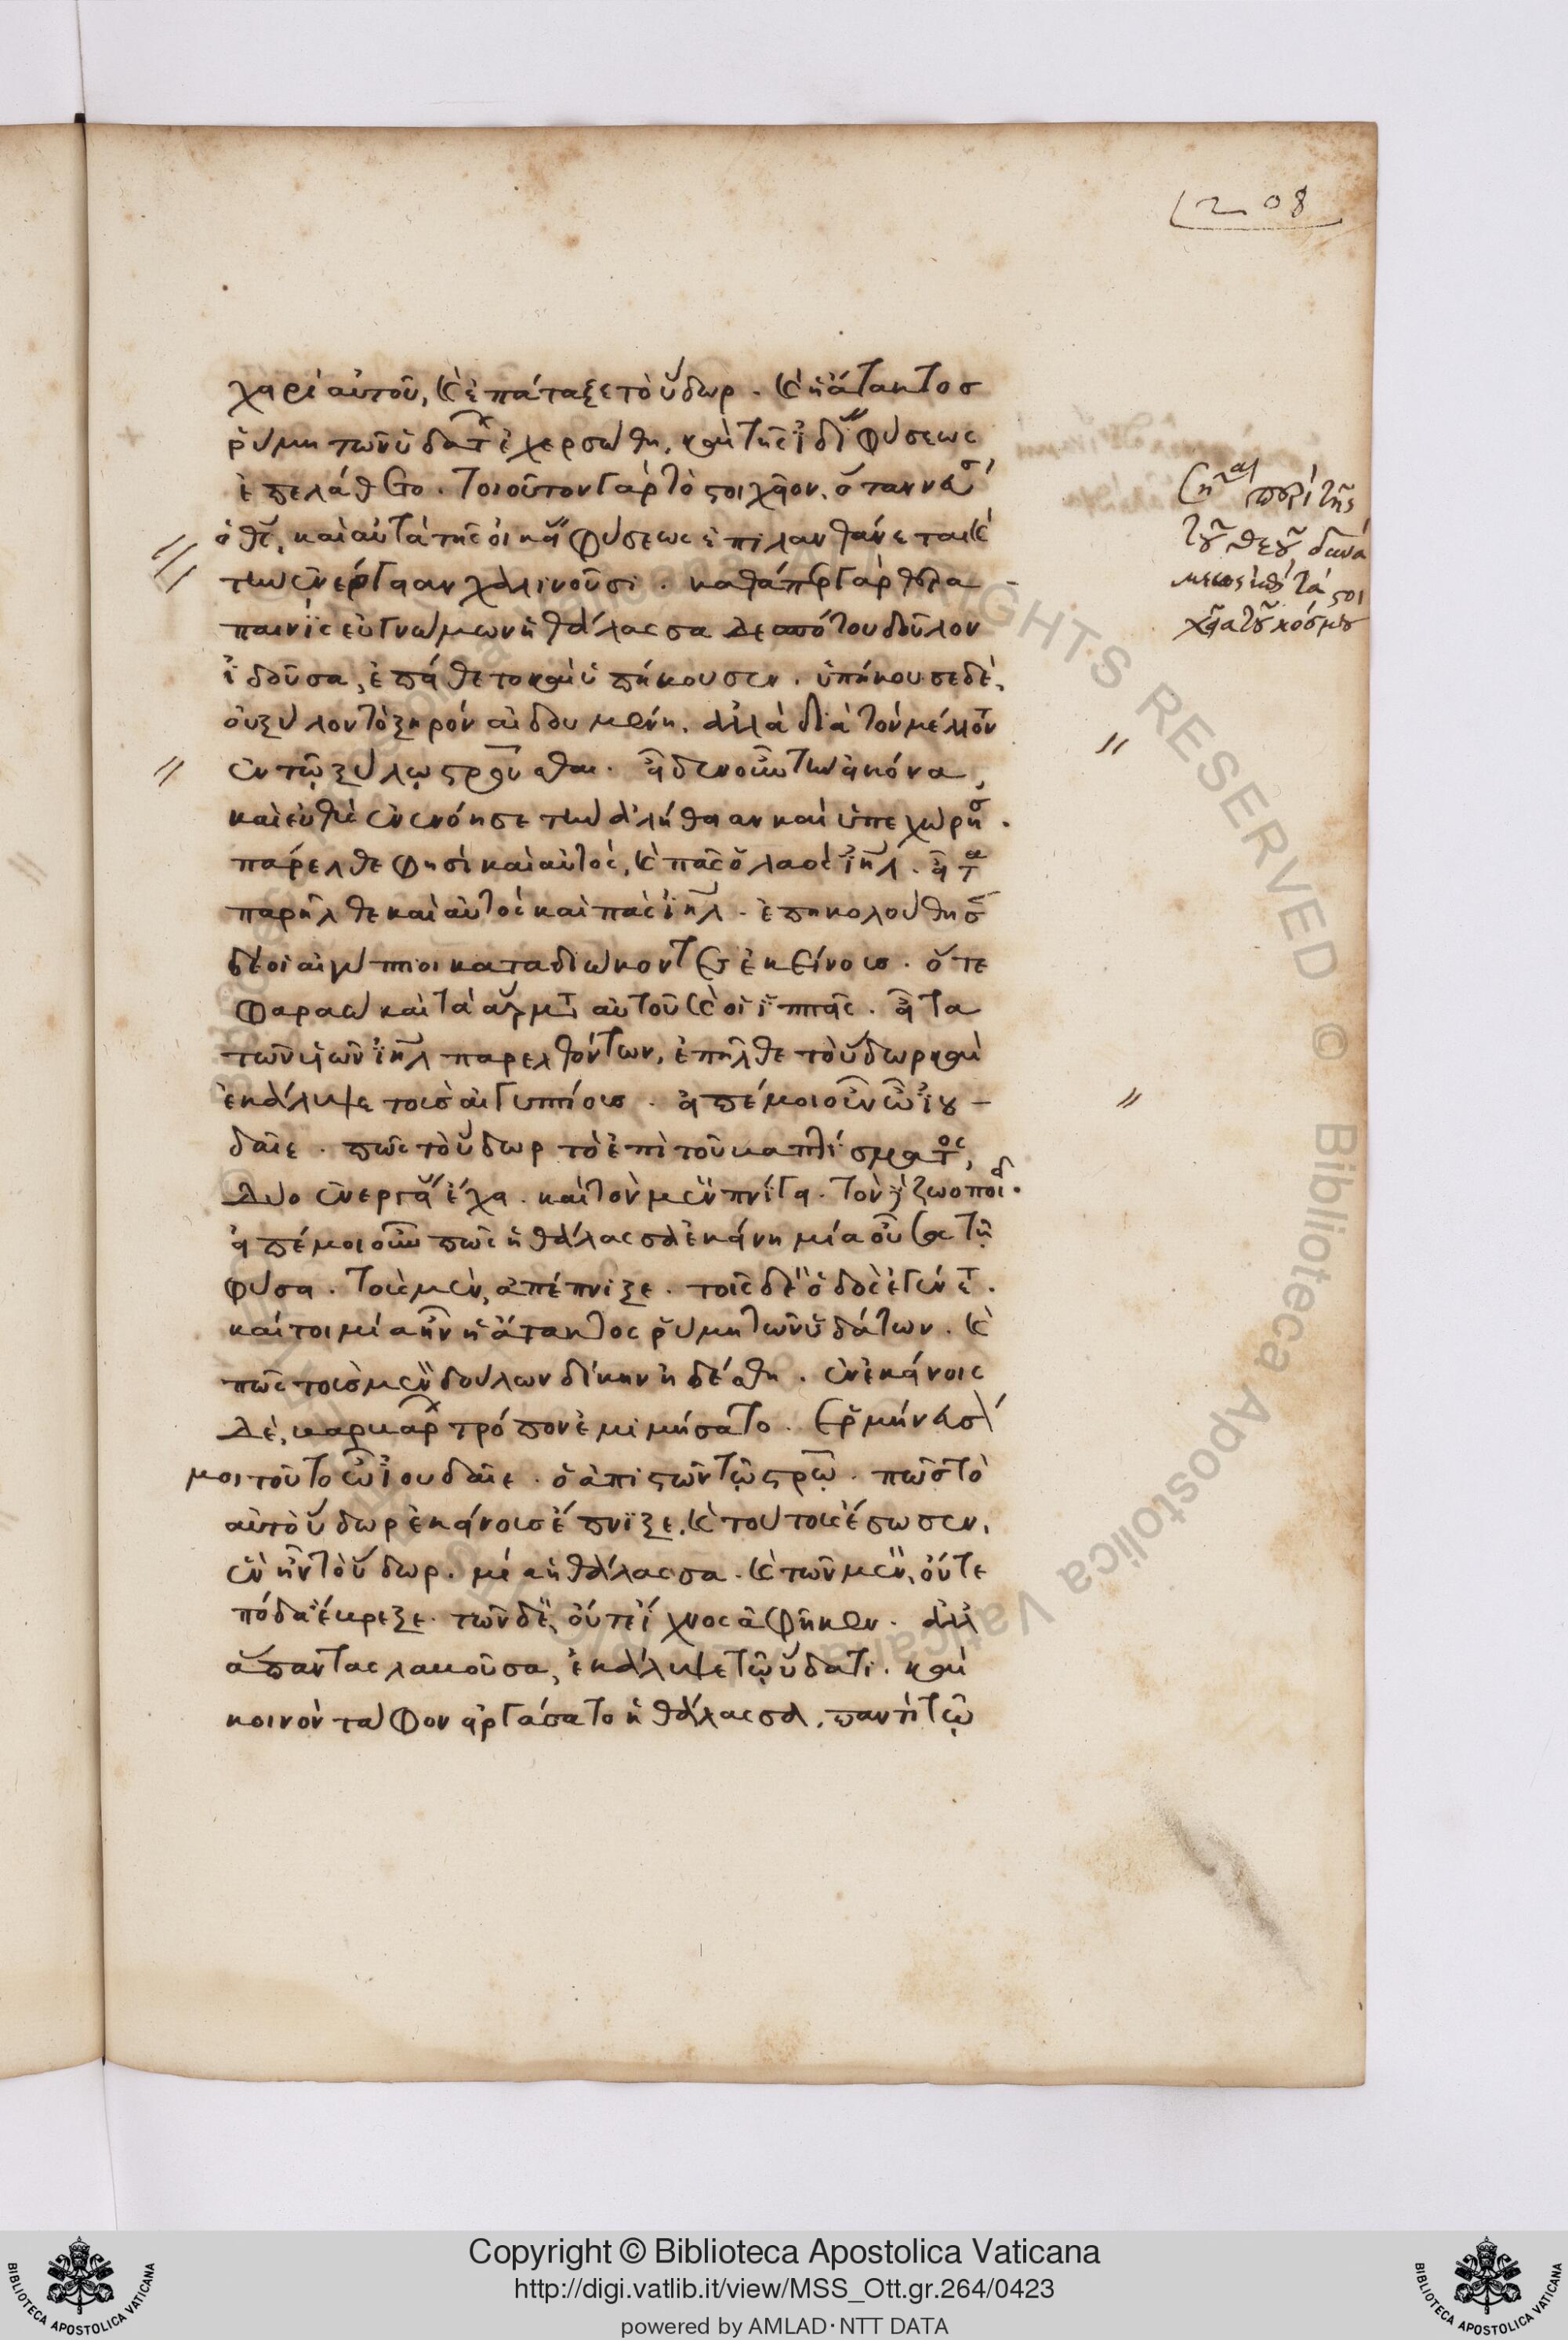 208
χειρὶ αὐτοῦ, καὶ ἐπάταξε τὸ ὕδωρ. καὶ ἡ ἄτακτος
ῥύμη τῶν ὑδάτ ἐχερσώθη, καὶ τῆς ἰδί φύσεως
ἐπελάθετο. τοιοῦτον γὰρ τὸ στοιχεῖον. ὅταν νεύσ
ὁ θς, καὶ αὐτὰ τῆς οἰκεί φύσεως ἐπιλανθάνεται καὶ
τὴν ἐνέργειαν χαλινοῦσι. καθάπερ γὰρ
παινὶς εὐγνώμων ἡ θάλασσα δεσπότου δοῦλον
ἰδοῦσα, ἐπείθετο καὶ ὑπήκουσεν. ὑπήκουσε δὲ,
οὐ ξύλον τὸ ξηρὸν αἰδουμένη. ἀλλὰ διὰ τὸν μέλλον
ἐν τῷ ξύλῳ σταυροῦσθαι. εἶδεν οὖν τὴν εἰκόνα,
καὶ εὐθὺς ἐνενόησε τὴν ἀλήθειαν καὶ ὑπεχώρησ.
πάρελθε φησὶ καὶ αὐτὸς, καὶ πᾶς ὁ λαὸς ιηλ. εἶτα
παρῆλθε καὶ αὐτὸς καὶ πᾶς ιηλ. ἐπηκολούθησ
δὲ οἱ αἰγύπτιοι καταδιώκοντες ἐκείνοις. ὅτε
φαραὼ καὶ τὰ ἅρματ αὐτοῦ καὶ οἱ ἱππεῖς. εἶτα
τῶν υἱῶν ιηλ παρελθόντων, ἐπῆλθε τὸ ὕδωρ καὶ
ἐκάλυψε τοὺς αἰγυπτίους. εἰπέ μοι οὖν ὦ ἰου-
δαῖε. πῶς τὸ ὕδωρ τὸ ἐπὶ τοῦ βαπτίσματος,
δύο ἐνεργεί ἔχει. καὶ τὸν μὲν πνίγει. τὸν δὲ ζωοποι.
εἰπέ μοι οὖν πῶς ἡ θάλασσα ἐκείνη μία οὖσα τῇ
φύσει. τοὺς μὲν, ἀπέπνιξε. τοῖς δὲ ὁδὸς ἐγένετ.
καίτοι μία ἦν ἡ ἄτακτος ῥύμη τῶν ὑδάτων. καὶ
πῶς τοὺς μὲν δούλων δίκην ᾐδέσθη. ἐν ἐκείνοις
δὲ, βαρβάρ τρόπον ἐμιμήσατο. ἑρμήνευσ
μοι τοῦτο ὦ ἰουδαῖε. ὁ ἀπιστῶν τῷ σταυρῷ. πῶς τὸ
αὐτὸ ὕδωρ ἐκείνους ἔπνιξε, καὶ τούτους ἔσωσεν,
ἓν ἦν τὸ ὕδωρ. μία ἡ θάλασσα. καὶ τῶν μὲν, οὔτε
πόδα ἔβρεξε. τῶν δὲ, οὔτε ἴχνος ἀφῆκεν. ἀλλ
ἅπαντας λαβοῦσα, ἐκάλυψε τῷ ὕδατι. καὶ
κοινὸν τάφον εἰργάσατο ἡ θάλασσα, παντὶ τῷ
ση αι περὶ τῆς
τοῦ θεοῦ δυνά
μεως τὰ στοι
χεῖα τοῦ κόσμου
Copyright © Biblioteca Apostolica Vaticana
http://digi.vatlib.it/view/MSS_Ott.gr.264/0423
powered by AMLAD·NTT DATA
BIBLIOTECA APOSTOLICA VATICANA
BIBLIOTECA APOSTOLICA VATICANA